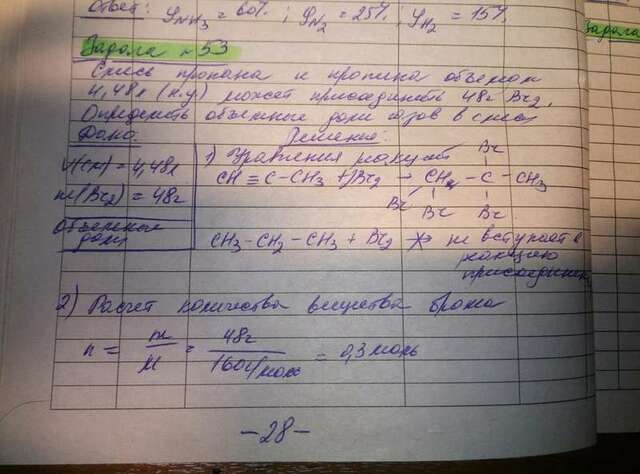 Ответ: φNH3 = 60%; φN2 = 25%; φH2 = 15%
Задача №53
Задача
Смесь пропана и пропина объемом
4,48л (н.у) может присоединить 48г Br2.
Определить объемные доли газов в смеси
Дано: Решение:
V(см) = 4,48л
m(Br2) = 48г
Объемные доли
1) Уравнения реакций
Br
CH ≡ C - CH3 + Br2 → CH - C - CH3
Br Br Br
CH3 - CH2 - CH3 + Br2 ↛ не вступает в
реакцию
присоединен
2) Расчет количества вещества брома
n = m/M = 48г/160г/моль = 0,3 моль
-28-